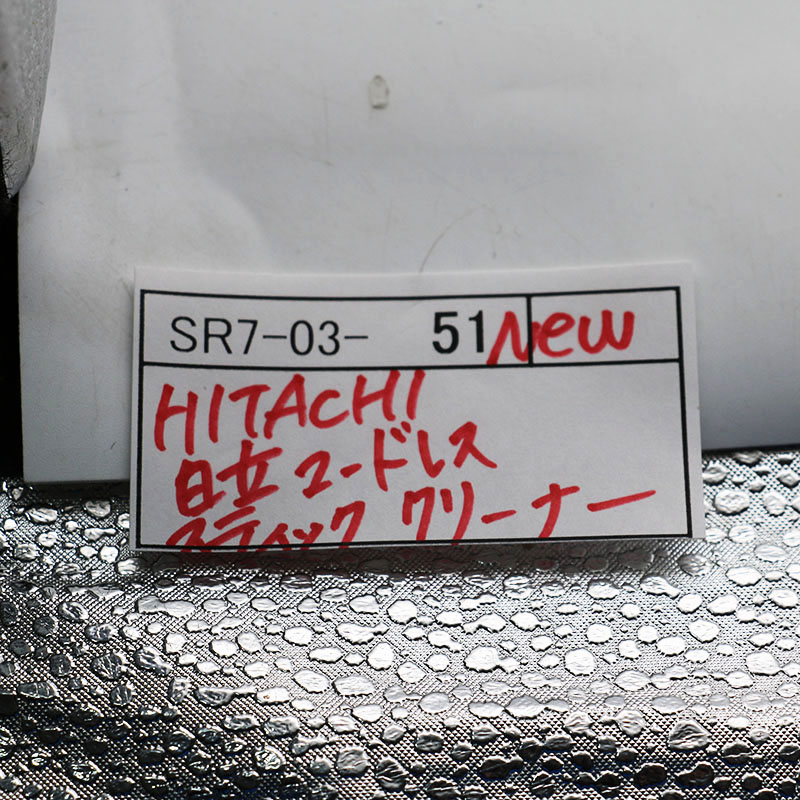 SR7-03- 51 New
HITACHI
日立コードレス
スティック クリーナー